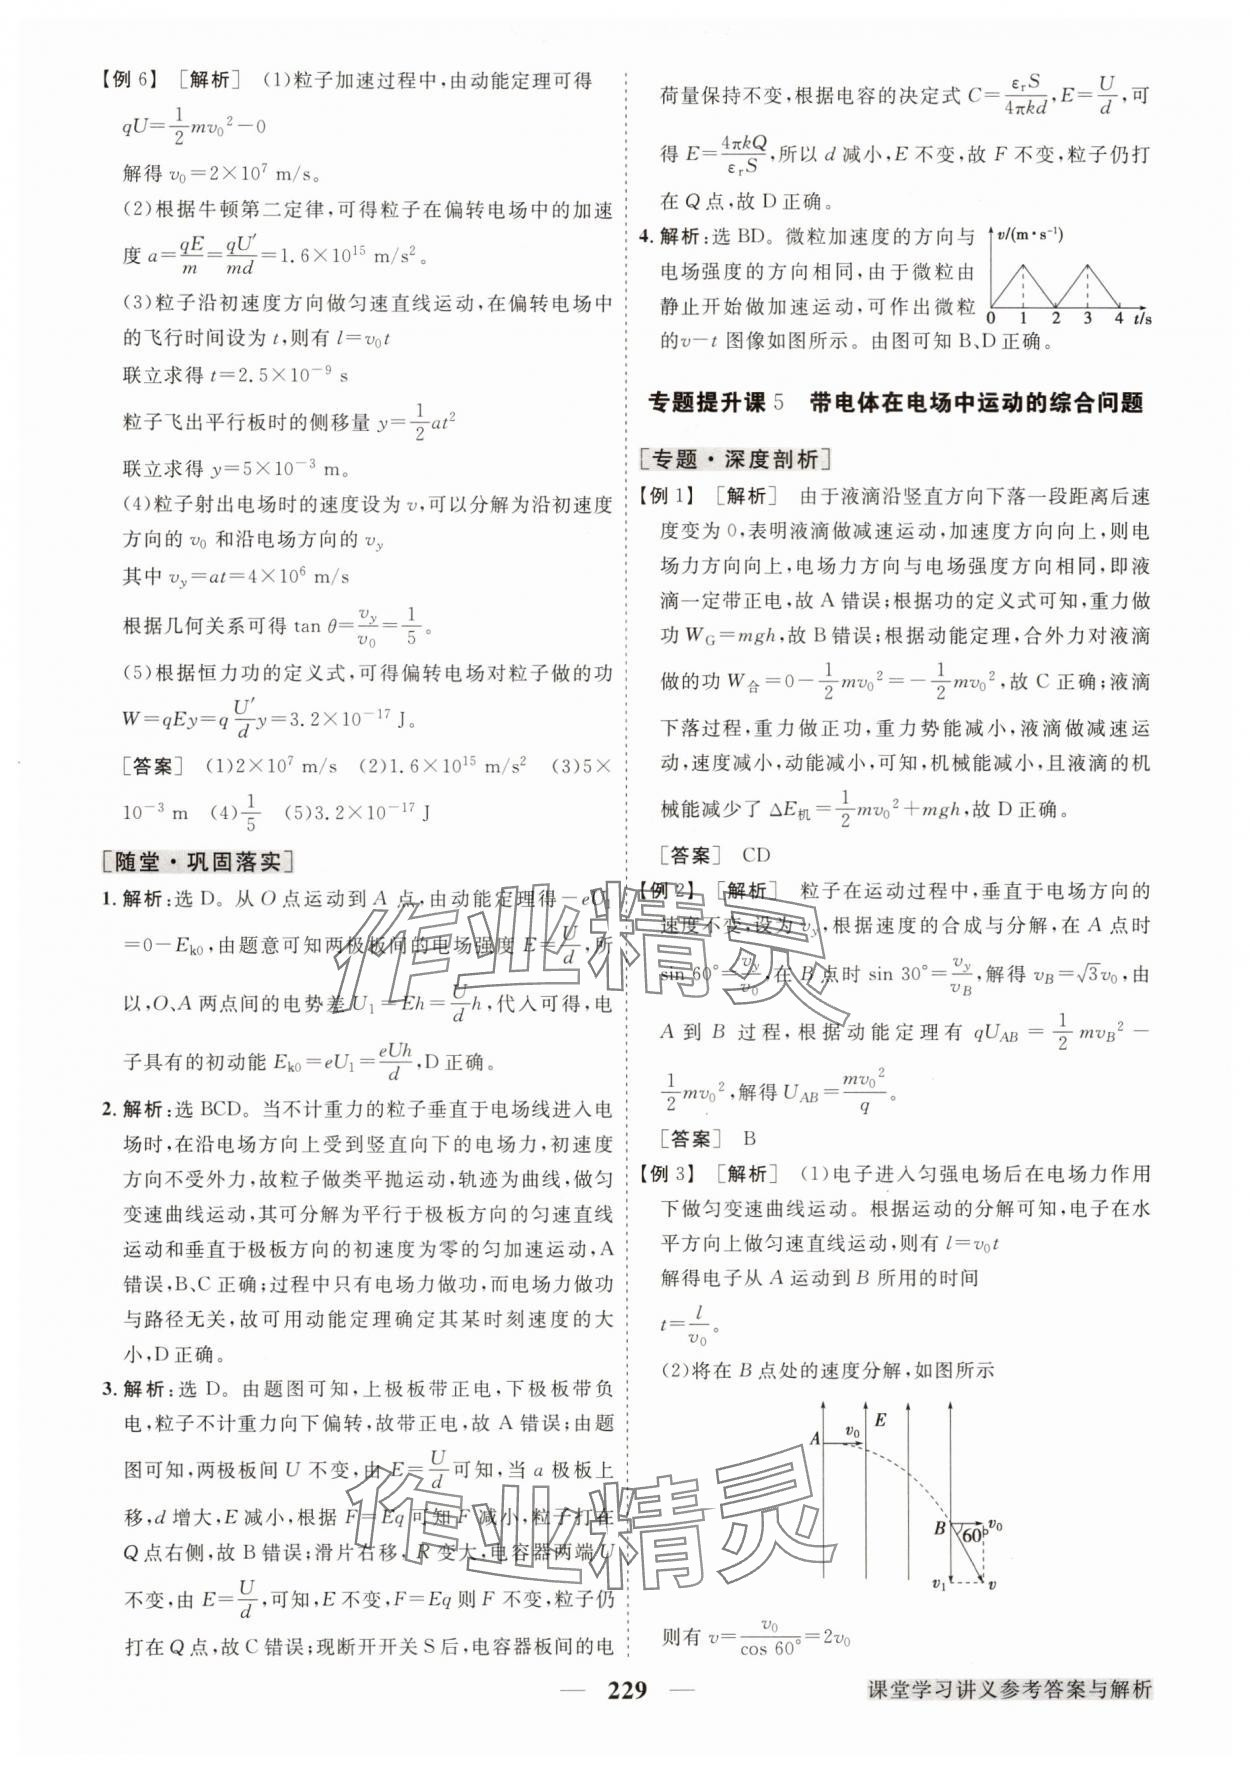 【例6】 [解析] (1)粒子加速过程中,由动能定理可得
qU=1/2mv₀²-0
解得 v₀=2×10⁷ m/s。
(2)根据牛顿第二定律,可得粒子在偏转电场中的加速
度 a=qE/m=qU′/md=1.6×10¹⁵ m/s²。
(3)粒子沿初速度方向做匀速直线运动,在偏转电场中
的飞行时间设为 t,则有 l=v₀t
联立求得 t=2.5×10⁻⁹ s
粒子飞出平行板时的侧移量 y=1/2at²
联立求得 y=5×10⁻³ m。
(4)粒子射出电场时的速度设为 v,可以分解为沿初速度
方向的 v₀ 和沿电场方向的 v_y
其中 v_y=at=4×10⁶ m/s
根据几何关系可得 tan θ=v_y/v₀=1/5。
(5)根据恒力功的定义式,可得偏转电场对粒子做的功
W=qEy=q U′/d y=3.2×10⁻¹⁷ J。
[答案] (1)2×10⁷ m/s (2)1.6×10¹⁵ m/s² (3)5×
10⁻³ m (4)1/5 (5)3.2×10⁻¹⁷ J
[随堂·巩固落实]
1.解析:选 D。从 O 点运动到 A 点,由动能定理得-eU₁
=0-E_k0,由题意可知两极板间的电场强度 E=U/d,所
以,O、A 两点间的电势差 U₁=Eh=U/d h,代入可得,电
子具有的初动能 E_k0=eU₁=eUh/d,D 正确。
2.解析:选 BCD。当不计重力的粒子垂直于电场线进入电
场时,在沿电场方向上受到竖直向下的电场力,初速度
方向不受外力,故粒子做类平抛运动,轨迹为曲线,做匀
变速曲线运动,其可分解为平行于极板方向的匀速直线
运动和垂直于极板方向的初速度为零的匀加速运动,A
错误,B、C 正确;过程中只有电场力做功,而电场力做功
与路径无关,故可用动能定理确定其某时刻速度的大
小,D 正确。
3.解析:选 D。由题图可知,上极板带正电,下极板带负
电,粒子不计重力向下偏转,故带正电,故 A 错误;由题
图可知,两极板间 U 不变,由 E=U/d可知,当 a 极板上
移,d 增大,E 减小,根据 F=Eq 可知 F 减小,粒子打在
Q 点右侧,故 B 错误;滑片右移,R 变大,电容器两端 U
不变,由 E=U/d,可知,E 不变,F=Eq 则 F 不变,粒子仍
打在 Q 点,故 C 错误;现断开开关 S 后,电容器板间的电
荷量保持不变,根据电容的决定式 C=ε_rS/4πkd,E=U/d,可
得 E=4πkQ/ε_rS,所以 d 减小,E 不变,故 F 不变,粒子仍打
在 Q 点,故 D 正确。
4.解析:选 BD。微粒加速度的方向与
电场强度的方向相同,由于微粒由
静止开始做加速运动,可作出微粒
的v-t 图像如图所示。由图可知 B、D 正确。
v/(m·s⁻¹)
0 1 2 3 4 t/s
专题提升课 5 带电体在电场中运动的综合问题
[专题·深度剖析]
【例1】 [解析] 由于液滴沿竖直方向下落一段距离后速
度变为 0,表明液滴做减速运动,加速度方向向上,则电
场力方向向上,电场力方向与电场强度方向相同,即液
滴一定带正电,故 A 错误;根据功的定义式可知,重力做
功 W_G=mgh,故 B 错误;根据动能定理,合外力对液滴
做的功 W合=0-1/2mv₀²=-1/2mv₀²,故 C 正确;液滴
下落过程,重力做正功,重力势能减小,液滴做减速运
动,速度减小,动能减小,可知,机械能减小,且液滴的机
械能减少了 ΔE机=1/2mv₀²+mgh,故 D 正确。
[答案] CD
【例2】 [解析] 粒子在运动过程中,垂直于电场方向的
速度不变,设为 v_y,根据速度的合成与分解,在 A 点时
sin 60°=v_y/v₀,在 B 点时 sin 30°=v_y/v_B,解得 v_B=√3v₀,由
A 到 B 过程,根据动能定理有 qU_AB=1/2mv_B²-
1/2mv₀²,解得 U_AB=mv₀²/q。
[答案] B
【例3】 [解析] (1)电子进入匀强电场后在电场力作用
下做匀变速曲线运动。根据运动的分解可知,电子在水
平方向上做匀速直线运动,则有 l=v₀t
解得电子从 A 运动到 B 所用的时间
t=l/v₀。
(2)将在 B 点处的速度分解,如图所示
A v₀ E
B v₀
60°
v₁ v
则有 v=v₀/cos 60°=2v₀
作业精灵
作业精灵
229
课堂学习讲义参考答案与解析